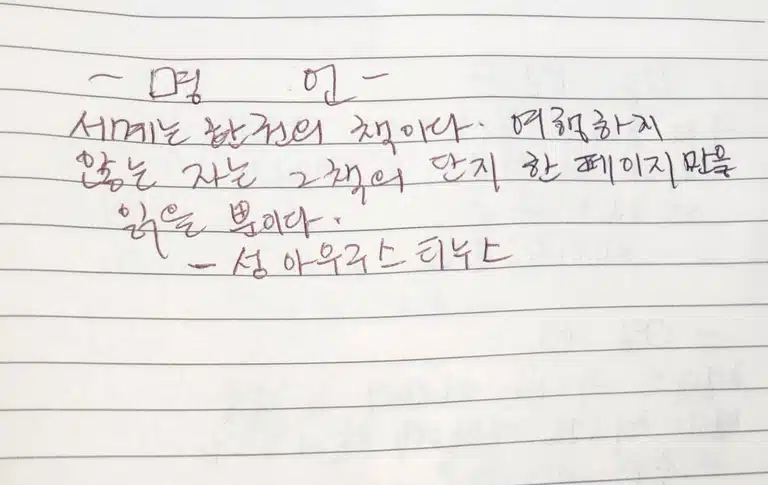 - 명 언 -
세계는 한권의 책이다. 여행하지
않는 자는 그 책의 단지 한 페이지만을
읽을 뿐이다.
- 성 아우구스티누스